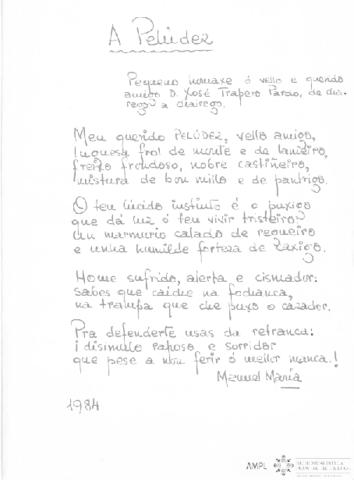 A PELÚDEZ
Pequeno homaxe ó vello e querido
amigo D. Xosé Trapero Pardo, de dia-
rego a diarego.
Meu querido PELÚDEZ, vello amigo,
frol de monte e de lameiro,
freixo frondoso, nobre castiñeiro,
mistura de bon millo e de pantrigo.
O teu lúcido instinto é o
que dá luz ó teu vivir tristeiro
un marmurio calado de regueiro
e unha humilde forteza de
Home sufrido, alerta e cismador:
sabes que caiche na
na trampa que che puxo o cazador.
Pra defenderte usas da retranca:
i disimulo raposo e sorridor
que pese a non ferir ó mellor manca!
Manuel María
1984
AMPL